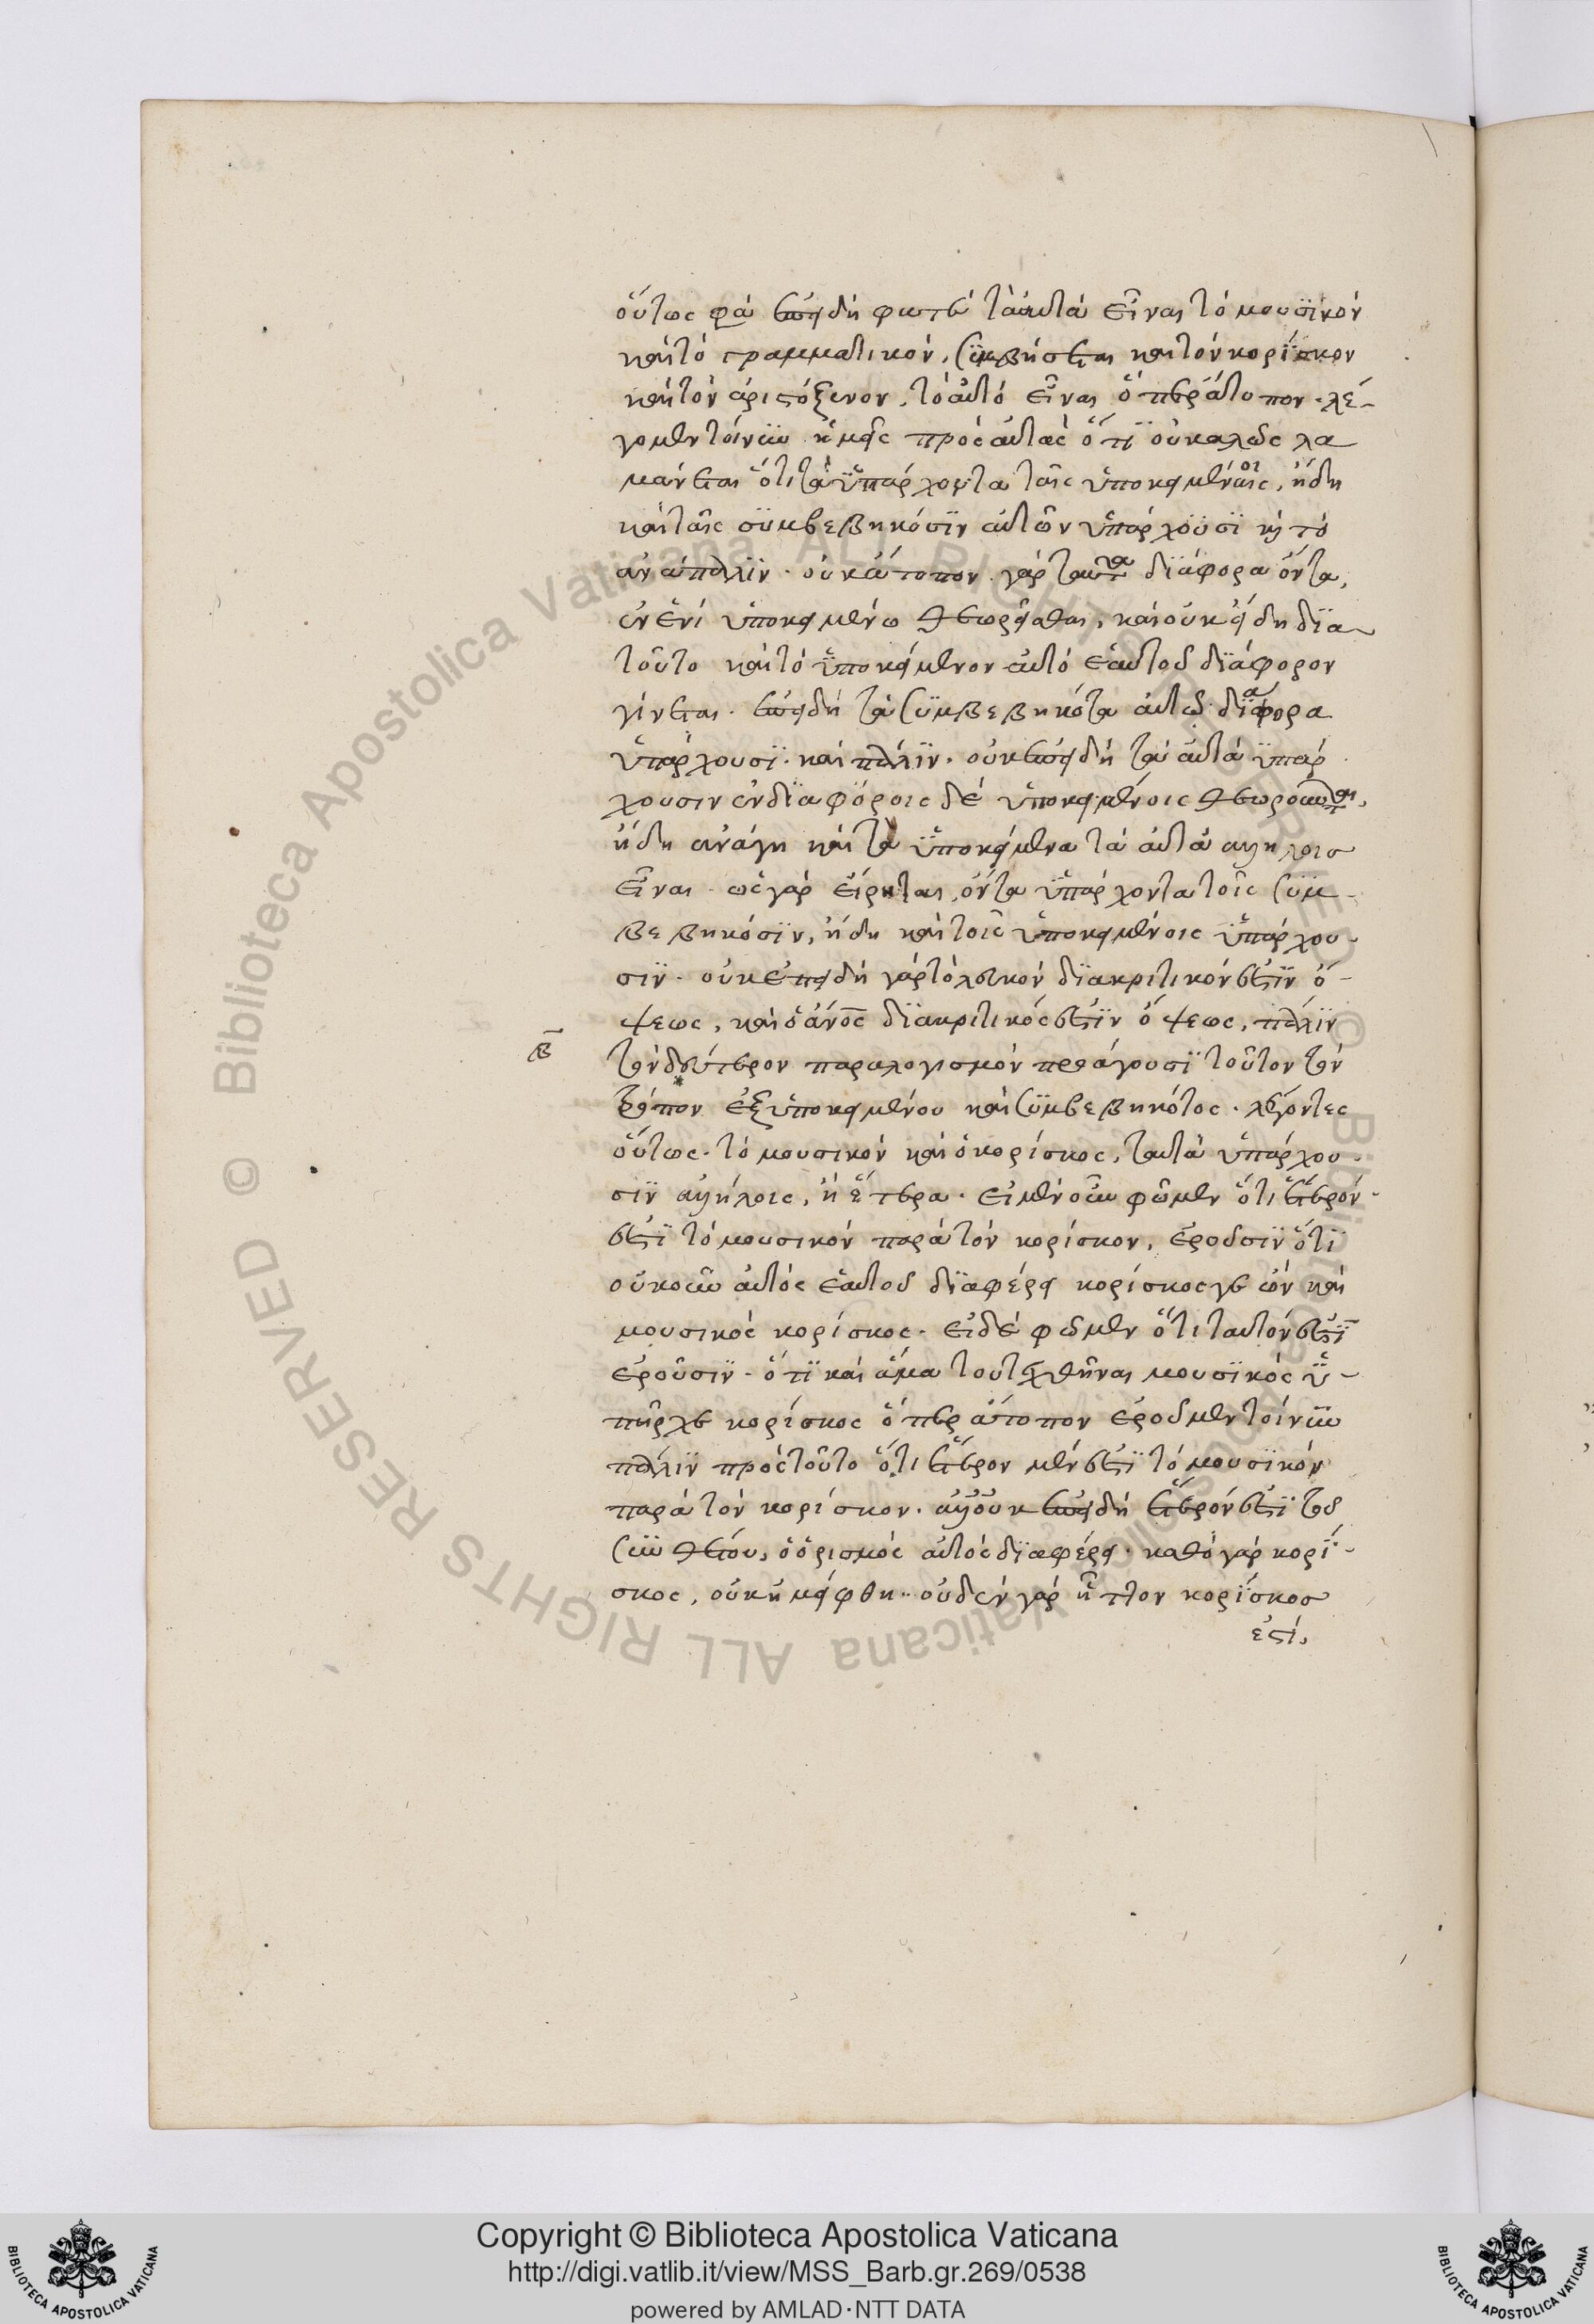 οὕτως ἐπειδή φατε τὰ αὐτὰ εἶναι τὸ μουσικὸν
καὶ τὸ γραμματικὸν, συμβήσεται καὶ τὸν κορίσκον
καὶ τὸν ἀριστόξενον, τὸ αὐτὸ εἶναι ὅπερ ἄτοπον. λέ-
γομεν τοίνυν ἡμεῖς πρὸς αὐτὰς ὅτι οὐ καλῶς λα
ὅτι τὰ ὑπάρχοντα ταῖς ὑποκειμέναις, ἤδη
καὶ ταῖς συμβεβηκόσιν αὐτῶν ὑπάρχουσι κỳ τὸ
ἀνάπαλιν. οὐκ ἄτοπον γὰρ ταῦτα διάφορα ὄντα,
ἐν ἑνὶ ὑποκειμένω θεωρεῖσθαι, καὶ οὐκ ἤδη δια
τοῦτο καὶ τὸ ὑποκείμενον αὐτὸ ἑαυτοῦ διάφορον
γίνεται. ἐπειδὴ τὰ συμβεβηκότα αὐτῶ διάφορα
ὑπάρχουσι. καὶ πάλιν. οὐκ ἐπειδὴ τὰ αὐτὰ ὑπάρ
χουσιν ἐν διαφόροις δὲ ὑποκειμένοις θεωροῦνται,
ἤδη ἀνάγκη καὶ τὰ ὑποκείμενα τὰ αὐτὰ ἀλλήλοις
εἶναι. ὡς γὰρ εἴρηται, ὄντα ὑπάρχοντα τοῖς συμ-
βεβηκόσιν, ἤδη καὶ τοῖς ὑποκειμένοις ὑπάρχου-
σιν. οὐκ ἐπειδὴ γὰρ τὸ λευκὸν διακριτικόν ἐστιν ὄ-
ψεως, καὶ ὁ ἄνος διακριτικός ἐστιν ὄψεως, πάλιν
β τὸν δεύτερον παραλογισμὸν προάγουσι τοῦτον τὸν
τρόπον ἐξ ὑποκειμένου καὶ συμβεβηκότος. λέγοντες
οὕτως. τὸ μουσικὸν καὶ ὁ κορίσκος, ταὐτὰ ὑπάρχου-
σιν ἀλλήλοις, ἢ ἕτερα. εἰ μὲν οὖν φῶμεν ὅτι ἕτερόν
ἐστι τὸ μουσικὸν παρὰ τὸν κορίσκον, ἐροῦσιν ὅτι
οὐκοῦν αὐτὸς ἑαυτοῦ διαφέρει κορίσκος γε ὢν καὶ
μουσικὸς κορίσκος. εἰ δὲ φῶμεν ὅτι ταυτόν ἐστι
ἐροῦσιν. ὅτι καὶ ἅμα τοῦ τεχθῆναι μουσικὸς ὑ-
πῆρχε κορίσκος ὅπερ ἄτοπον ἐροῦμεν τοίνυν
πάλιν πρὸς τοῦτο ὅτι ἕτερον μέν ἐστι τὸ μουσικὸν
παρὰ τὸν κορίσκον. ἀλλ' οὐκ ἐπειδὴ ἕτερόν ἐστι τοῦ
συνθέτου, ὁ ὁρισμὸς αὐτὸς διαφέρει. καθὸ γὰρ κορί-
σκος, οὐκ ἠμείφθη. οὐδὲν γὰρ ἧττον κορίσκος
ἐστί,
Copyright © Biblioteca Apostolica Vaticana
http://digi.vatlib.it/view/MSS_Barb.gr.269/0538
powered by AMLAD·NTT DATA